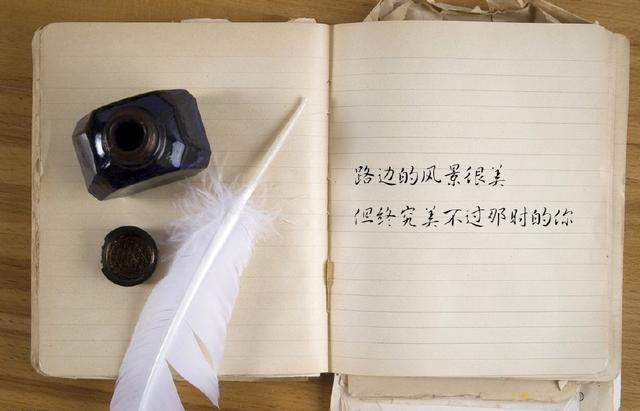 路边的风景很美
但终究美不过那时的你